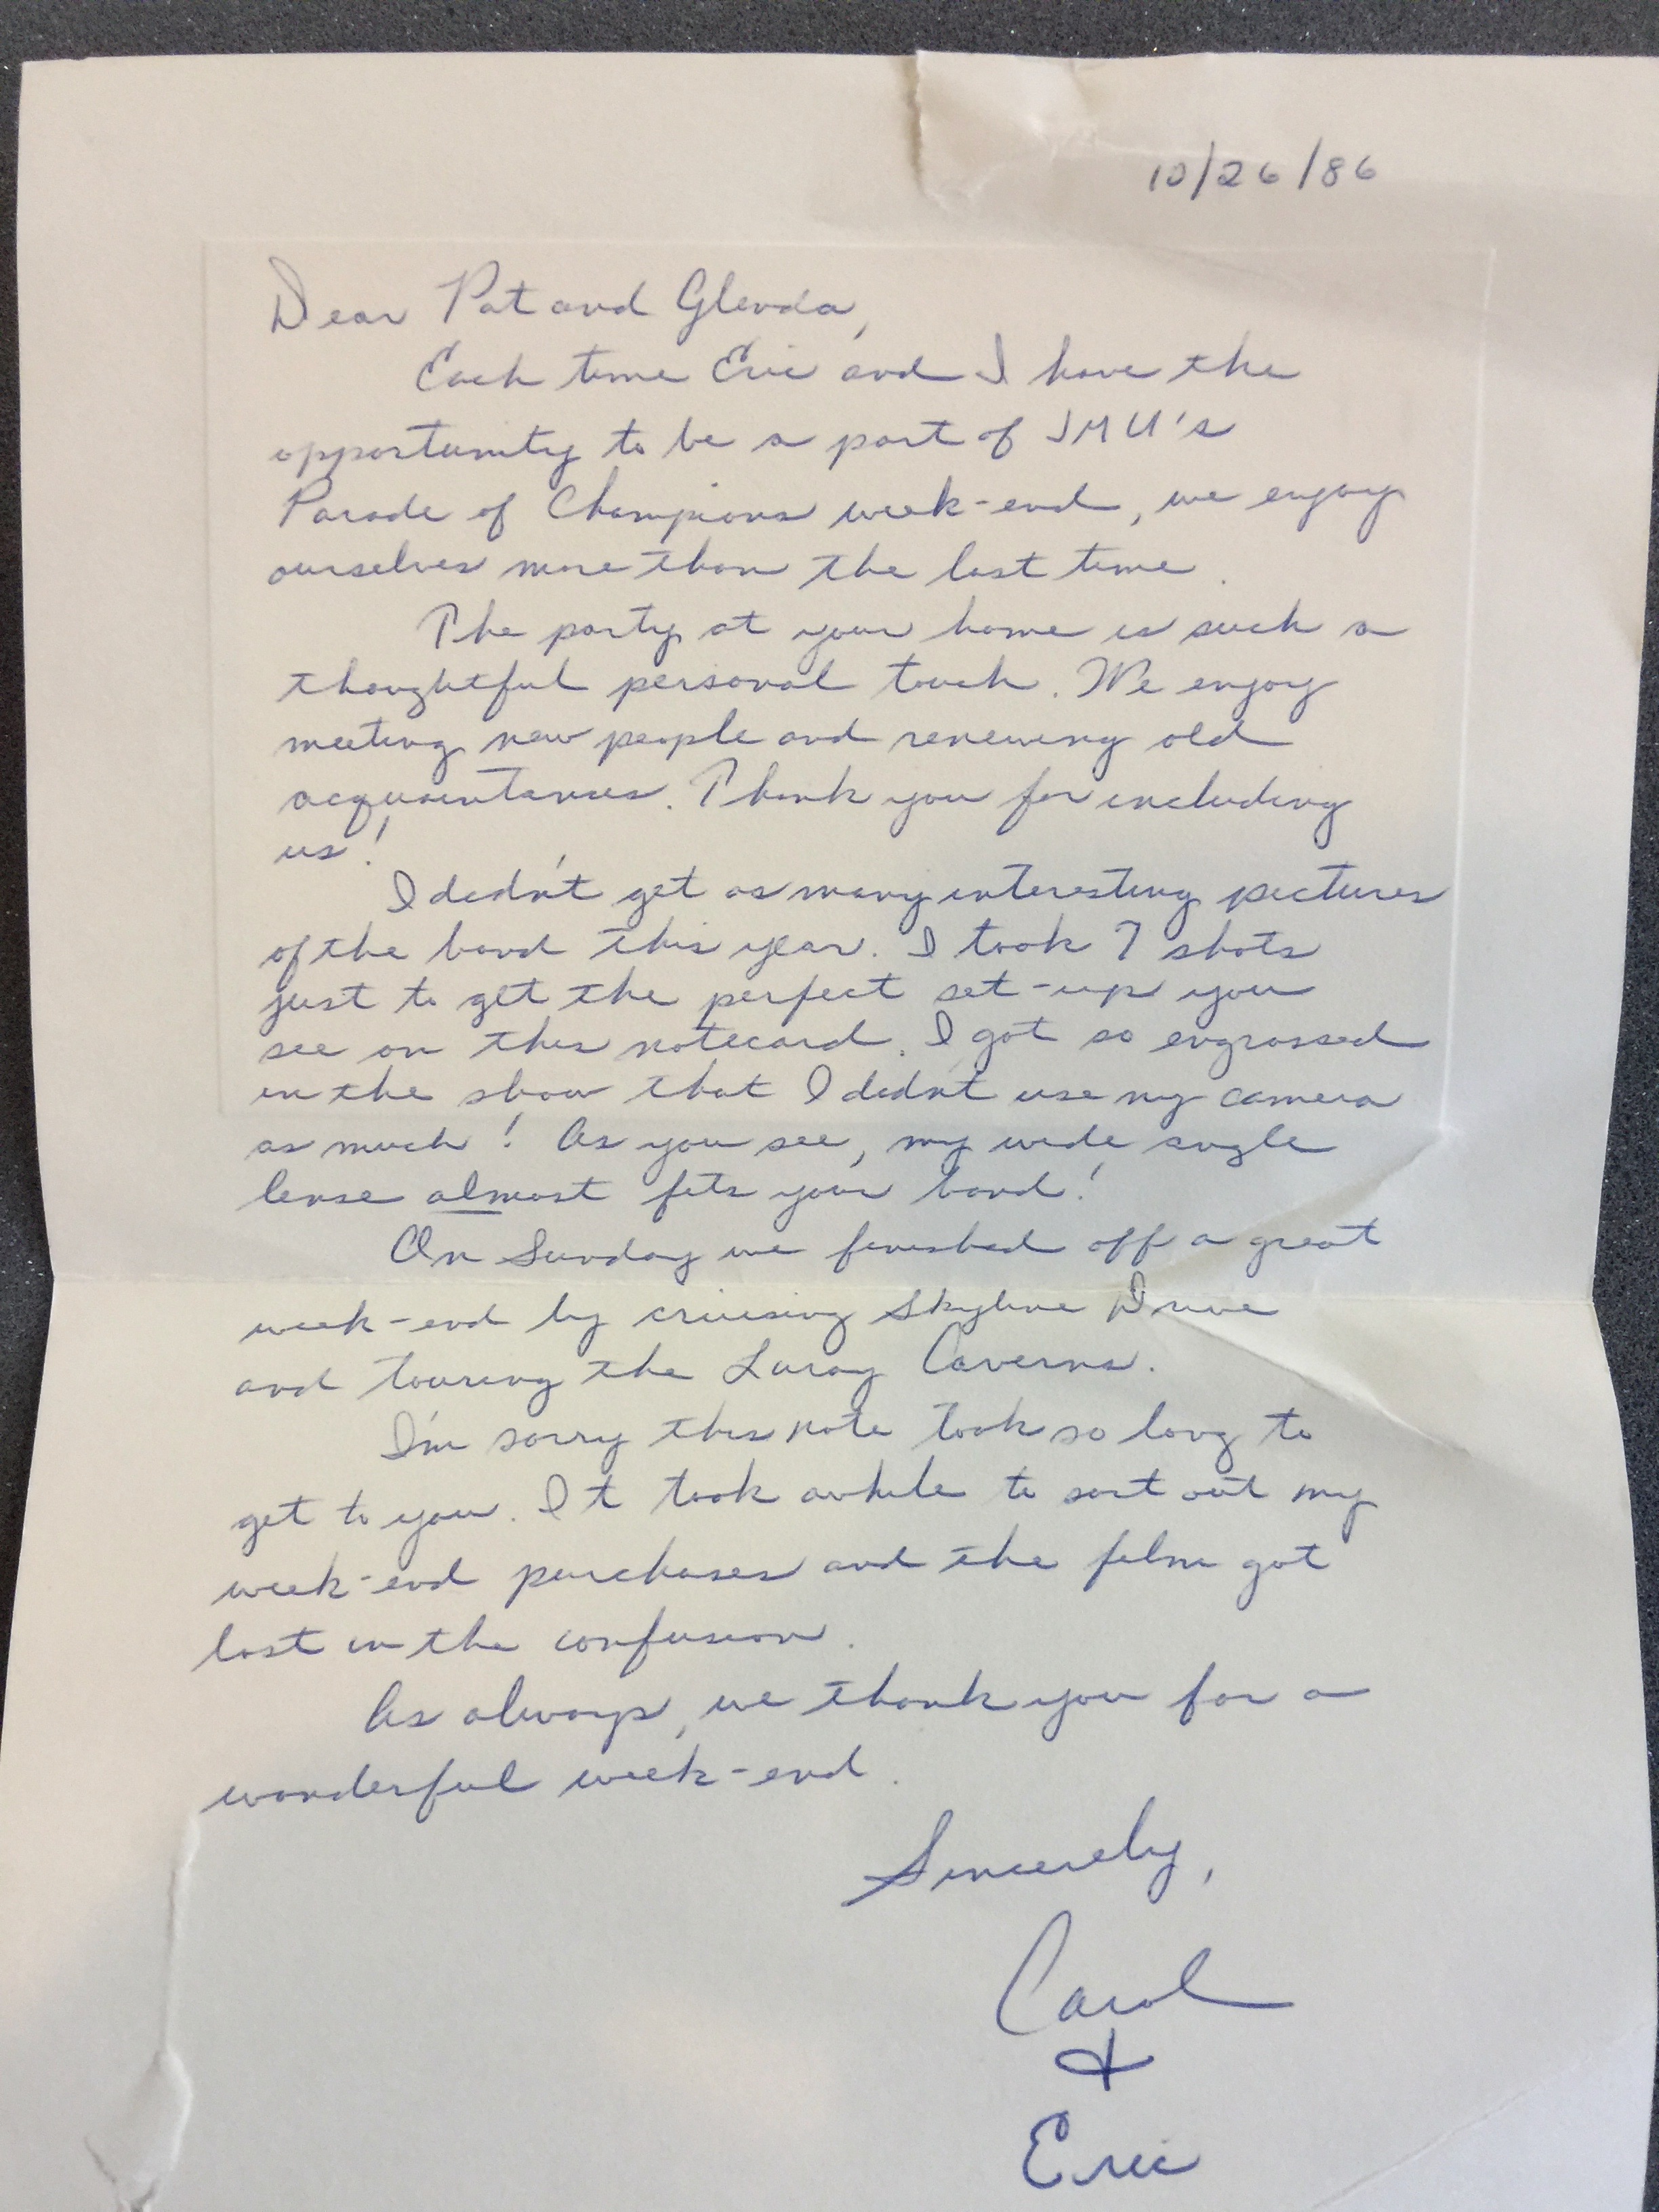 10/26/86
Dear Pat and Glenda,
Each time Eric and I have the
opportunity to be a part of JMU's
Parade of Champions week-end, we enjoy
ourselves more than the last time.
The party at your home is such a
thoughtful personal touch. We enjoy
meeting new people and renewing old
acquaintances. Thank you for including
us!
I didn't get as many interesting pictures
of the band this year. I took 7 shots
just to get the perfect set-up you
see on this notecard. I got so engrossed
in the show that I didn't use my camera
as much! As you see, my wide angle
lense almost fits your band!
On Sunday we finished off a great
week-end by cruising Skyline Drive
and touring the Luray Caverns.
I'm sorry this note took so long to
get to you. It took awhile to sort out my
week-end purchases and the film got
lost in the confusion.
As always, we thank you for a
wonderful week-end.
Sincerely,
Carol
&
Eric